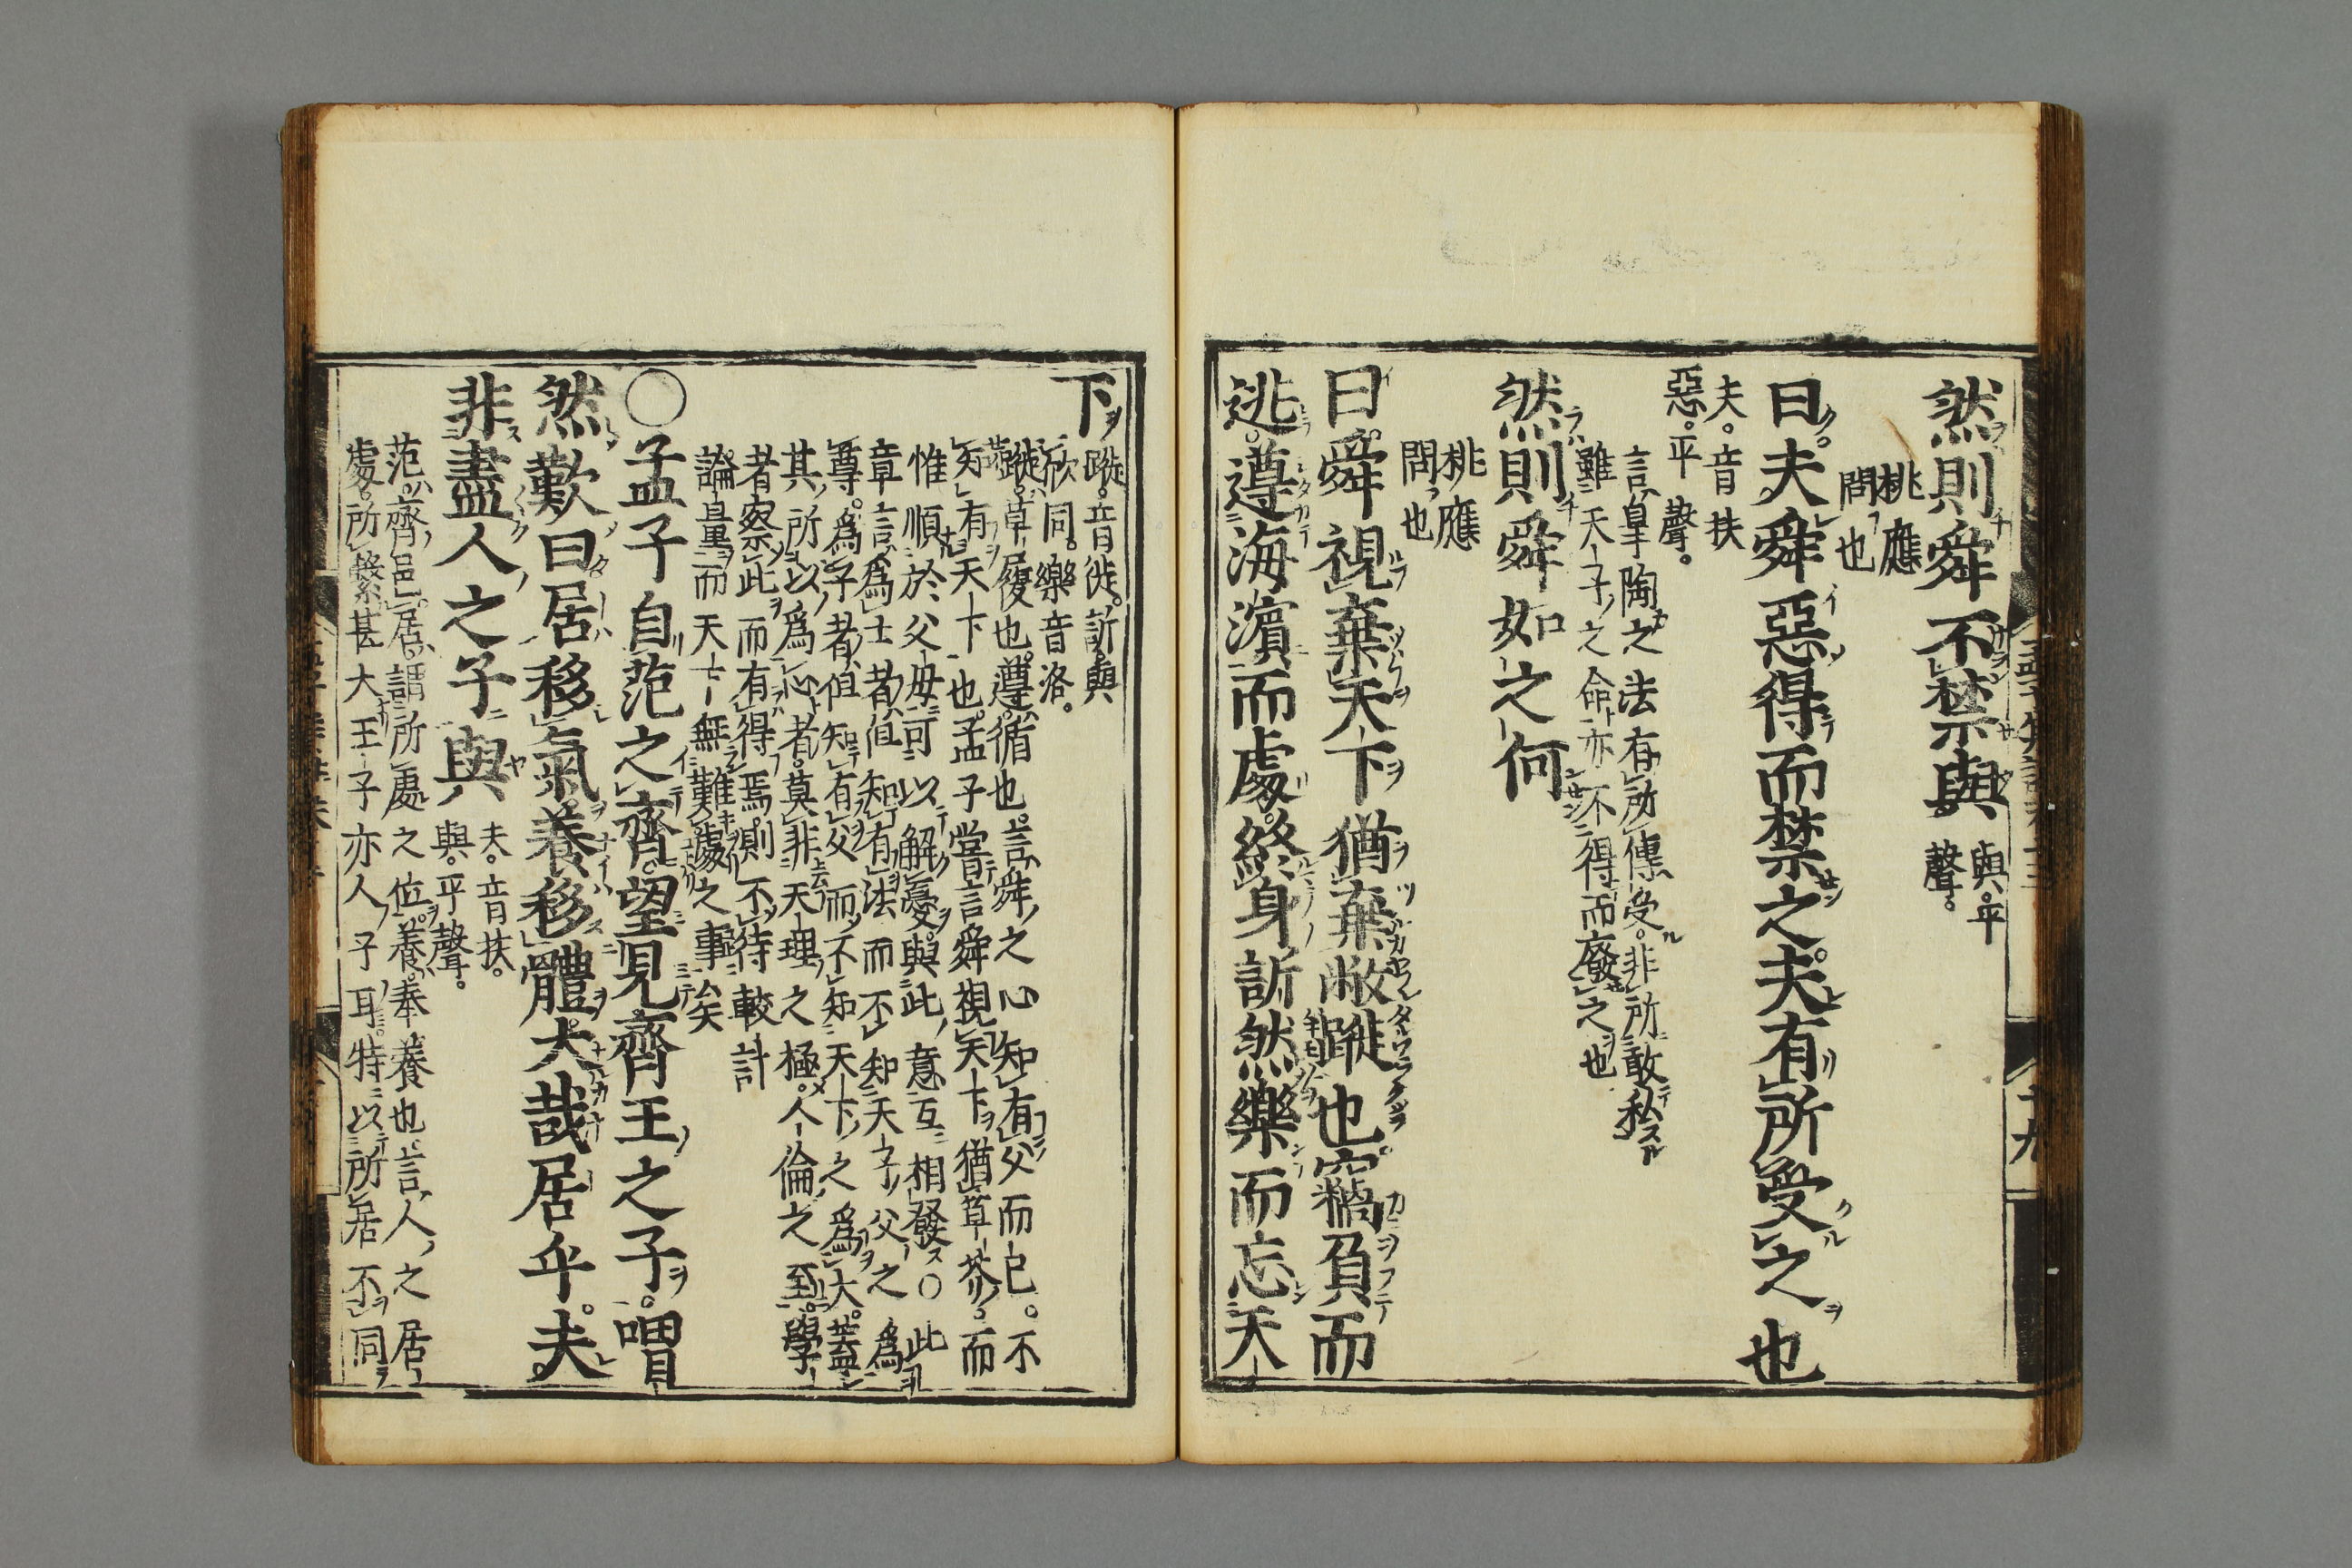 然則舜不禁與與平
聲
桃應
問也
曰夫舜惡得而禁之夫有所受之也
夫音扶
惡平聲
言皐陶之法有所傳受非所敢私
雖天子之命亦不得而廢之也
然則舜如之何
桃應
問也
曰舜視棄天下猶棄敝蹝也竊負而
逃遵海濱而處終身訢然樂而忘天
下蹝音徙訢與
欣同樂音洛
蹝草履也遵循也言舜之心知有父而已不
知有天下也孟子嘗言舜視天下猶草芥而
惟順於父母可以解憂與此意互相發○此
章言為士者但知有法而不知天子父之為
尊為子者但知有父而不知天下之為大蓋
其所以為心者莫非天理之極人倫之至學
者察此而有得焉則不待較計
論量而天下無難處之事矣
○孟子自范之齊望見齊王之子喟
然歎曰居移氣養移體大哉居乎夫
非盡人之子與夫音扶
與平聲
范齊邑居謂所處之位養奉養也言人之居
處所繫甚大王子亦人子耳特以所居不同